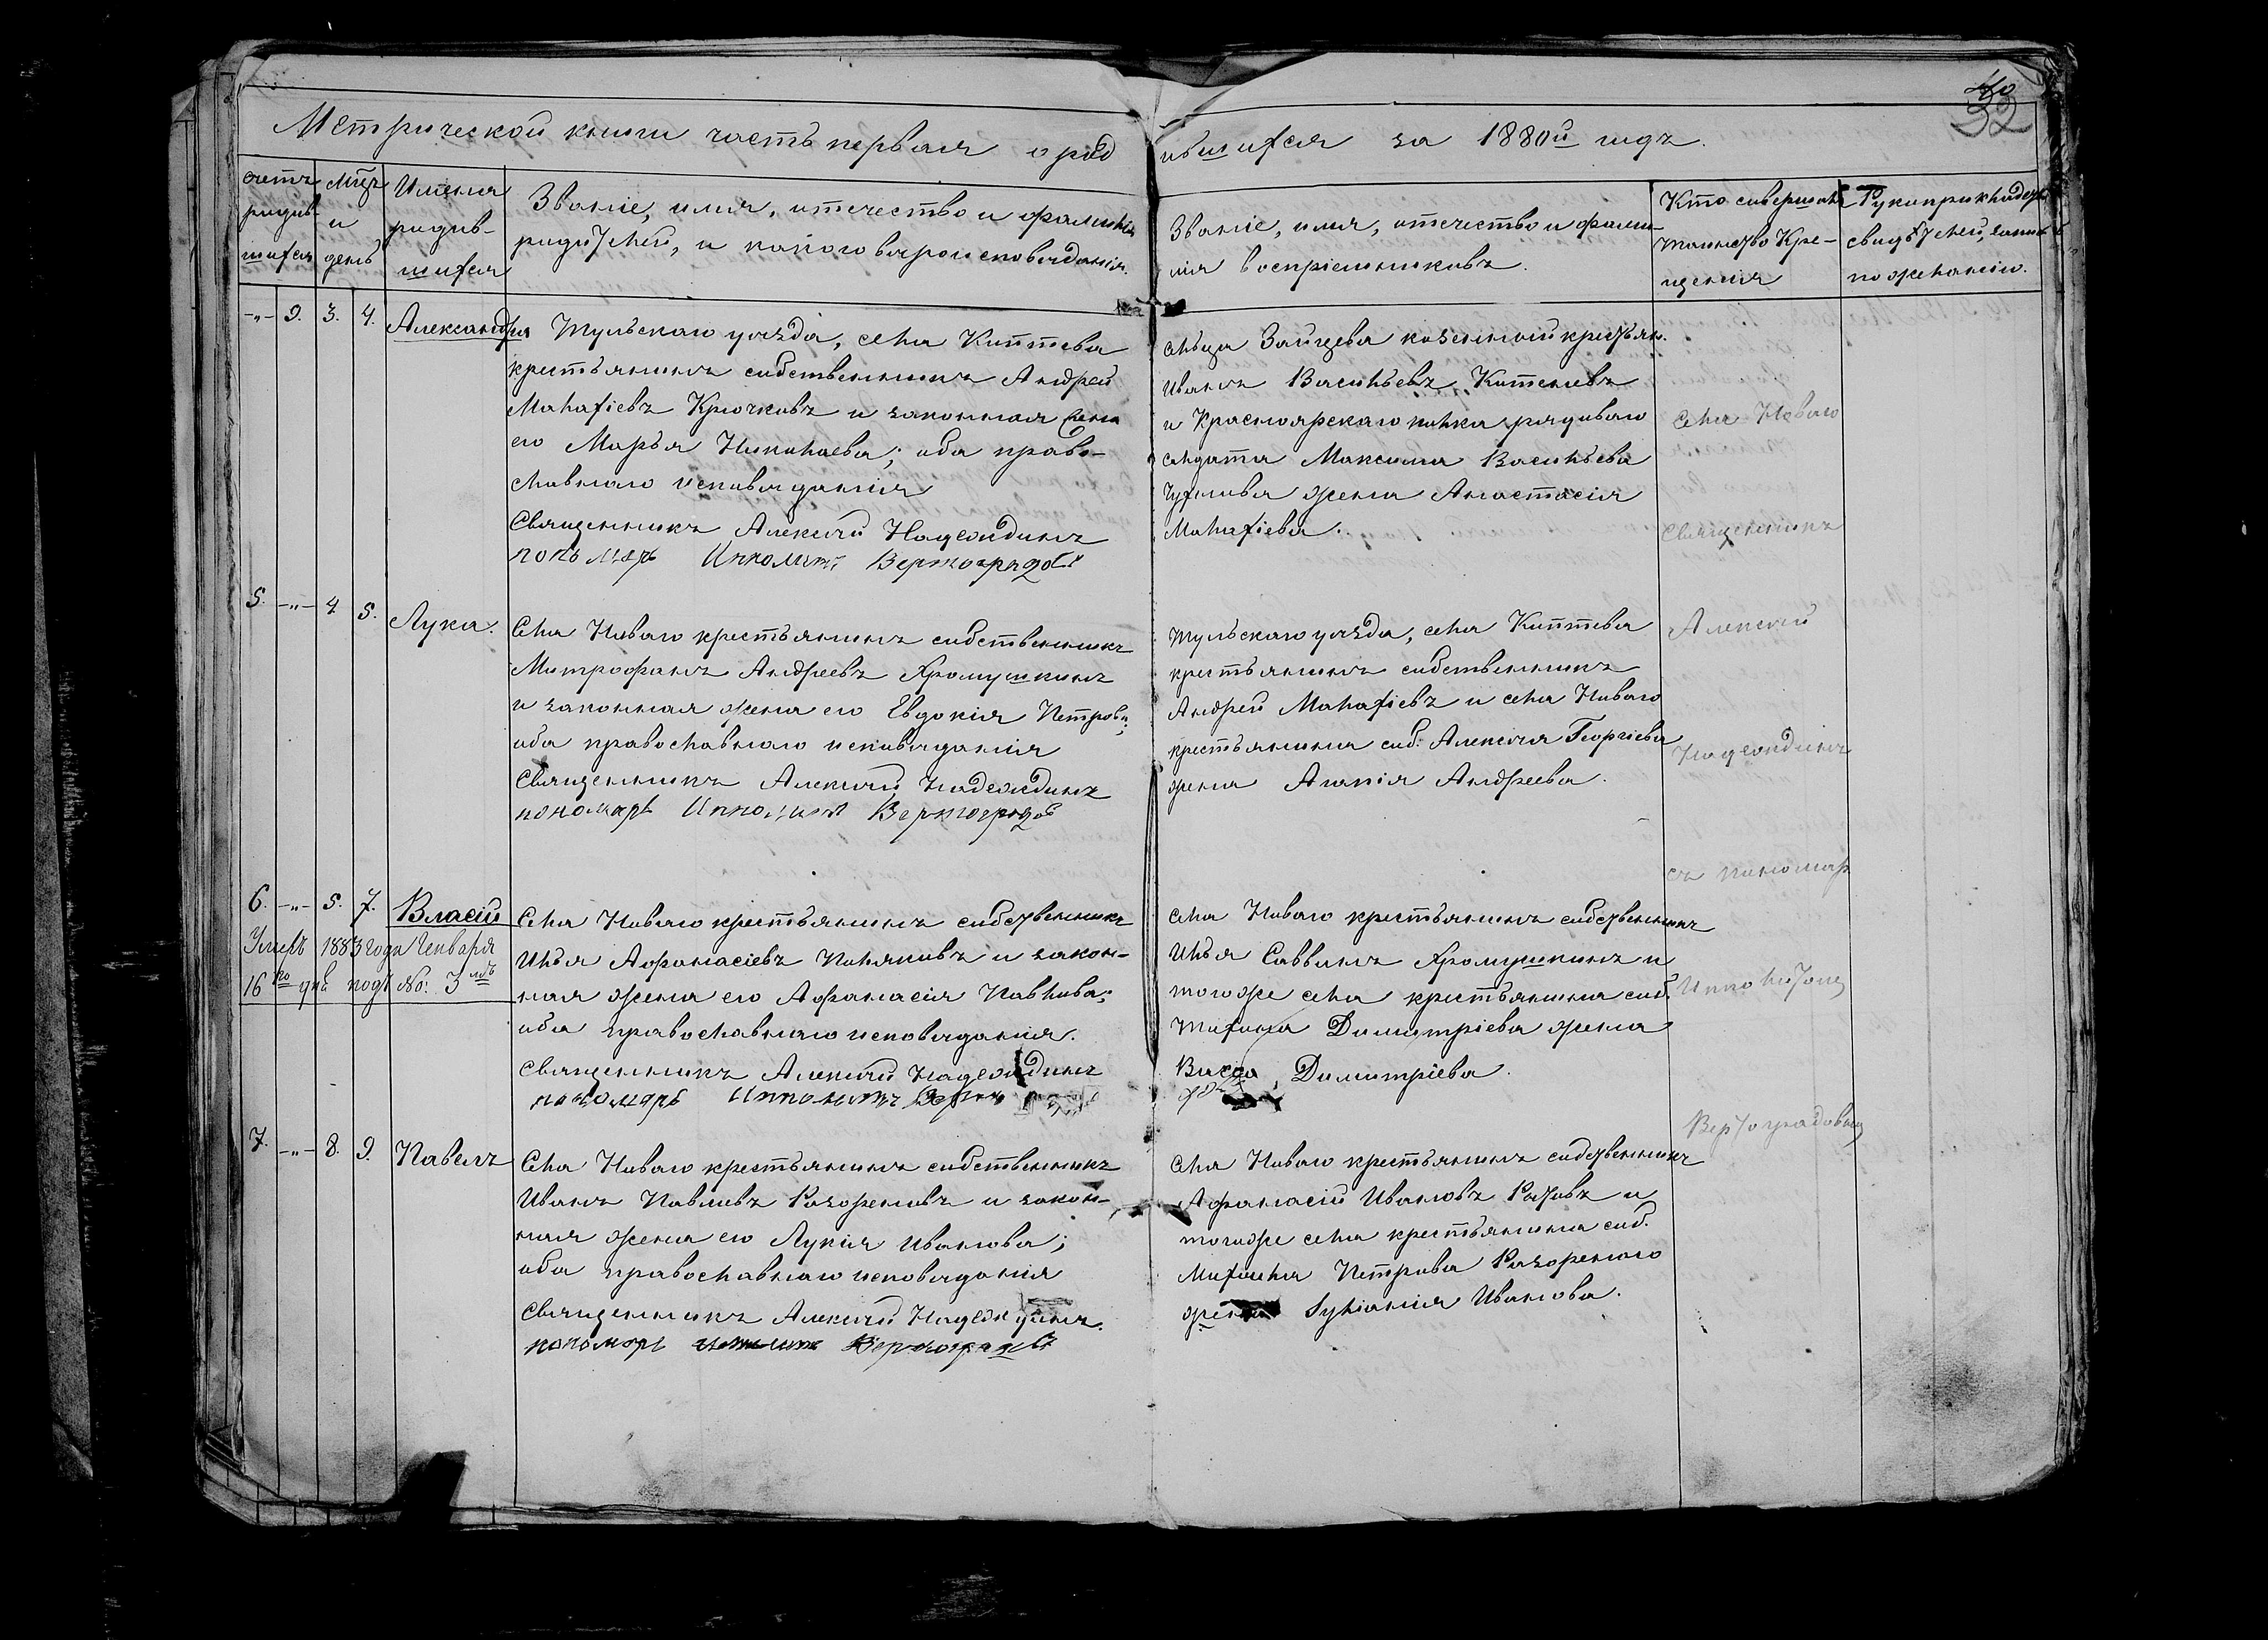 40
32
Метрической книги часть первая о род
ившихся за 1880й годъ.
счетъ родив-шихся
Мѣсяцъ и день
Имена родив-шихся
Званіе, имя, отечество и фамилія
родителей, и какого вѣроисповѣданія.
Званіе, имя, отечество и фами-
лія воспріемниковъ.
Кто совершалъ
таинство Кре-
щенія
Рукоприкладство
свидѣтелей, записи
по желанію.
-"- 9. 3. 4. Александра
Тульскаго уѣзда, села Коптева
крестьянинъ собственникъ Андрей
Малахіевъ Крючковъ и законная жена
его Марья Николаева; оба право-
славнаго исповѣданія
Священникъ Алексій Надеждинъ
пономарь Ипполитъ Вертоградовъ
сельца Зайцева казенный крестьян.
Иванъ Васильевъ Котеневъ
и Красноярскаго полка рядоваго
солдата Максима Васильева
жена Анастасія
Малахіева.
5. -"- 4. 5. Лука.
Села Новаго крестьянинъ собственникъ
Митрофанъ Андреевъ Хромушкинъ
и законная жена его Евдокія Петрова;
оба православнаго исповѣданія
Священникъ Алексій Надеждинъ
пономарь Ипполитъ Вертоградовъ
Тульскаго уѣзда, села Коптева
крестьянинъ собственникъ
Андрей Малахіевъ и села Новаго
крестьянина соб. Алексія Георгіева
жена Агапія Андреева.
6. -"- 5. 7. Власій
Умеръ 1883 года Генваря
16го дня подъ №: 3мъ
Села Новаго крестьянинъ собственникъ
Илья Афанасіевъ Поляковъ и закон-
ная жена его Афанасія Павлова;
оба православнаго исповѣданія.
Священникъ Алексій Надеждинъ
пономарь Ипполитъ
села Новаго крестьянинъ собственникъ
Илья Саввинъ Хромушкинъ и
тогоже села крестьянина соб.
Тихона Димитріева жена
Васса Димитріева.
7. -"- 8. 9. Павелъ
Села Новаго крестьянинъ собственникъ
Иванъ Павловъ Разореновъ и закон-
ная жена его Лукія Иванова;
оба православнаго исповѣданія
Священникъ Алексій Надеждинъ.
пономарь Ипполитъ Вертоградовъ
села Новаго крестьянинъ собственникъ
Афанасій Ивановъ и
тогоже села крестьянина соб.
Михаила Петрова Разоренаго
жена Іуліанія Иванова.
Села Новаго
Священникъ
Алексій
Надеждинъ
съ пономар
Ипполитомъ
Вертоградовымъ